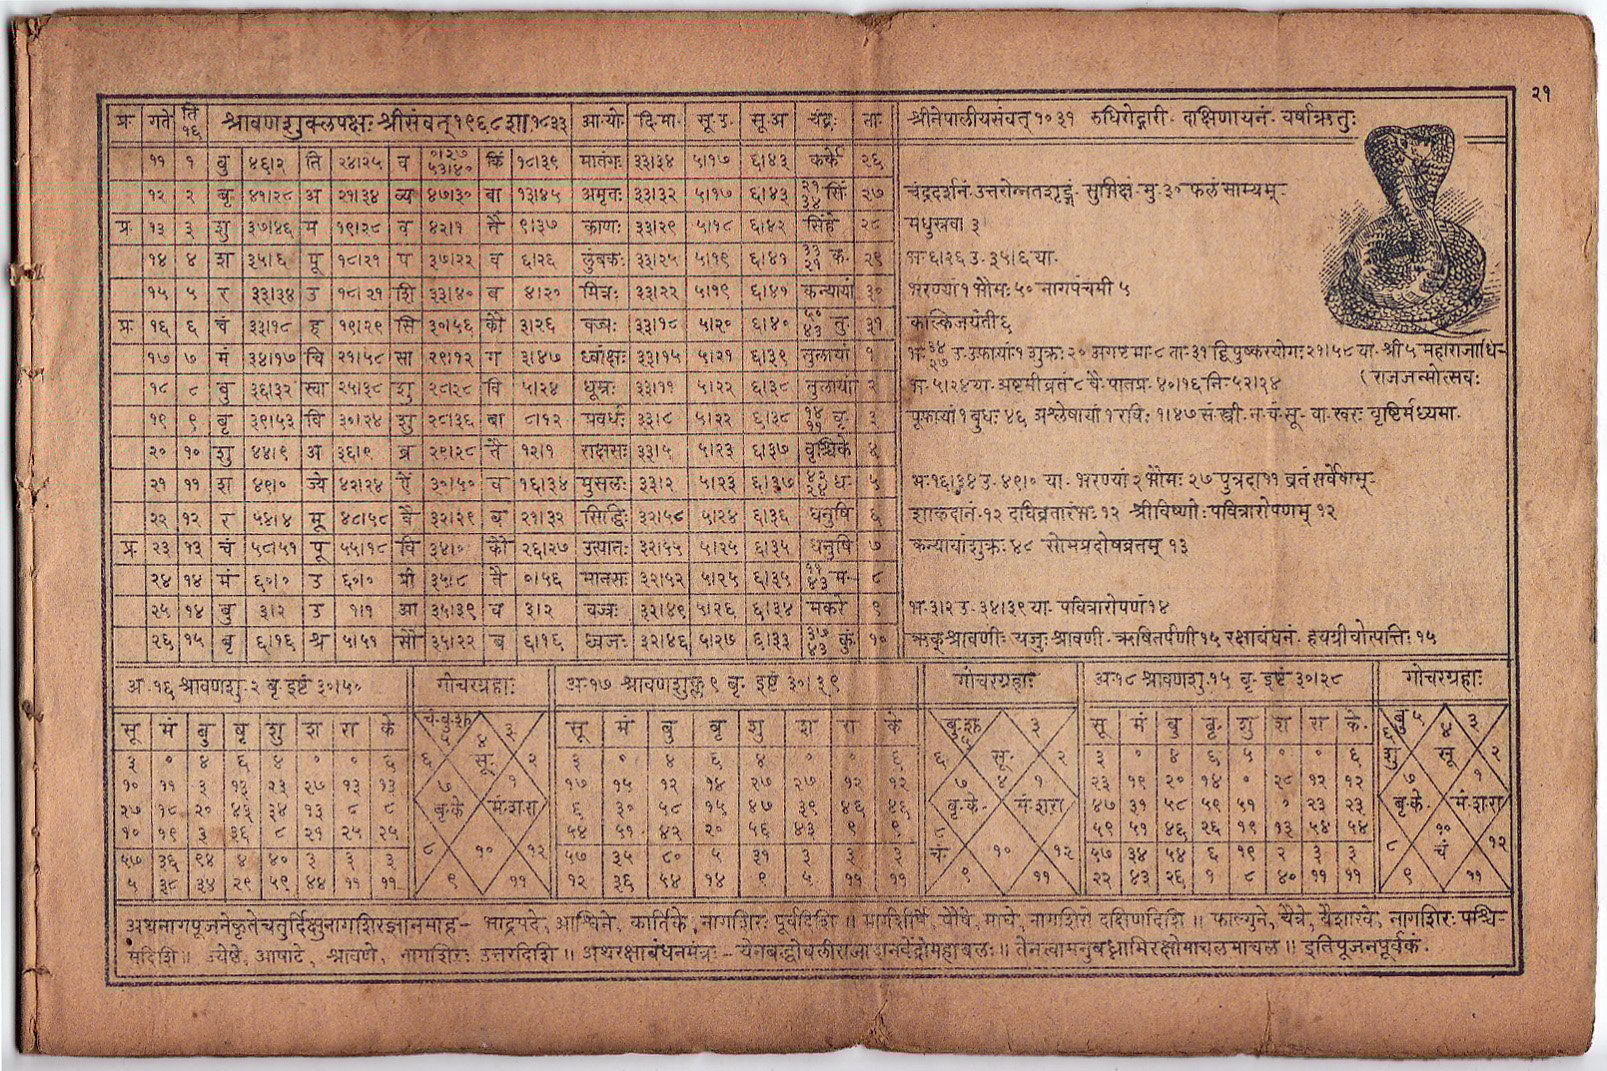 २१
प्र· गते ति १६ श्रावणशुक्लपक्षः श्रीसंवत् १९६८ शा १८३३ आ·यो· दि·मा· सू·उ· सू·अ चंद्रः ता· श्रीनेपालीयसंवत् १०३१ रुधिरोद्गारी· दाक्षिणायनं· वर्षाऋतुः
११ १ बु ४६।२ ति २४।२५ व ०।२७ ५३।४० किं १८।३९ मातंगः ३३।३४ ५।१७ ६।४३ कर्के २६
१२ २ बृ ४१।२८ अ २१।३४ व्य ४७।३० बा १३।४५ अमृतः ३३।३२ ५।१७ ६।४३ २१ ३४ सिं २७ चंद्रदर्शनं उत्तरोन्नतशृङ्गं सुभिक्षं मु·३० फलं साम्यम्
प्र· १३ ३ शु ३७।४६ म १९।२८ व ४२।१ तै ९।३७ काणः ३३।२९ ५।१८ ६।४२ सिंहे २८ मधुस्रवा ३
१४ ४ श ३५।६ पू १८।२१ प ३७।२२ व ६।२६ लुंबकः ३३।२५ ५।१९ ६।४१ ३३ २१ क· २९ भ·६।२६ उ·३५।६ या·
१५ ५ र ३३।३४ उ १८।२१ शि ३३।४० ब ४।२० मित्रः ३३।२२ ५।१९ ६।४१ कन्यायां ३० भरण्यां १ भौमः ५० नागपंचमी ५
प्र· १६ ६ चं ३३।१८ ह १९।२९ सि ३०।५६ कौ ३।२६ वज्रः ३३।१८ ५।२० ६।४० ५० ४३ तु· ३१ कल्किजयंती ६
१७ ७ मं ३४।१७ चि २१।५८ सा २९।१२ ग ३।४७ ध्वांक्षः ३३।१५ ५।२१ ६।३९ तुलायां १ भ· ३४ २७ उ·उफायां १ शुक्रः २० अगष्ट मा·८ ता·३१ द्विपुष्करयोगः २१।५८ या· श्री ५ महाराजाधि–
१८ ८ बु ३६।३२ स्वा २५।३८ शु २८।२८ वि ५।२४ धूम्रः ३३।११ ५।२२ ६।३८ तुलायां २ भ·५।२४ या· अष्टमीव्रतं ८ वै·पातप्र·४०।१६ नि·५२।२४ (राजजन्मोत्सवः
१९ ९ बृ ३९।५३ वि ३०।२४ शु २८।३६ बा ८।१२ प्रवर्धः ३३।८ ५।२२ ६।३८ १४ ११ वृ· ३ पूफायां १ बुधः ४६ अश्लेषायां १ रविः १।४७ सं·स्त्री·न·चं·सू·वा·खरः वृष्टिर्मध्यमा·
२० १० शु ४४।९ अ ३६।९ ब्र २९।२८ तै १२।१ राक्षसः ३३।५ ५।२३ ६।३७ वृश्चिके ४
२१ ११ श ४९।० ज्ये ४२।२४ ऐं ३०।५० व १६।३४ मुसलः ३३।२ ५।२३ ६।३७ ४३ २४ ध· ५ भ·१६।३४ उ·४९।० या· भरण्यां २ भौमः २७ पुत्रदा ११ व्रतं सर्वेषाम्·
२२ १२ र ५४।४ मू ४८।५८ वै ३२।२९ ब २१।३२ सिद्धिः ३२।५८ ५।२४ ६।३६ धनुषि ६ शाकदानं·१२ दधिव्रतारंभः १२ श्रीविष्णोः पवित्रारोपणम् १२
प्र· २३ १३ चं ५८।५१ पू ५५।१८ वि ३४।० कौ २६।२७ उत्पातः ३२।५५ ५।२५ ६।३५ धनुषि ७ कन्यायांशुक्रः ४८ सोमप्रदोषव्रतम् १३
२४ १४ मं ६०।० उ ६०।० प्री ३५।८ तै ०।५६ मानसः ३२।५२ ५।२५ ६।३५ ११ ४३ म· ८
२५ १४ बु ३।२ उ १।१ आ ३५।३९ व ३।२ वज्रः ३२।४९ ५।२६ ६।३४ मकरे ९ भ·३।२ उ·३४।३९ या· पवित्रारोपणं १४
२६ १५ बृ ६।१६ श्र ५।५१ सौ ३५।२२ ब ६।१६ ध्वजः ३२।४६ ५।२७ ६।३३ ३७ ४३ कुं १० ऋक्·श्रावणीः यजुः श्रावणी·ऋषितर्पणी १५ रक्षाबंधनं· हयग्रीवोत्पत्तिः १५
अ·१६ श्रावणशु·२ बृ·इष्टं ३०।५० गोचरग्रहाः अ·१७ श्रावणशुक्ल ९ बृ· इष्टं ३०।३९ गोचरग्रहाः अ·१८ श्रावणशु·१५ बृ·इष्टं ३०।२८ गोचरग्रहाः
सू मं बु बृ शु श रा के
३ ० ४ ६ ४ ० ० ६
१० ११ ३ १३ २३ २७ १३ १३
२७ १८ २० ४३ ३४ १३ ८ ८
१० १९ ३ ३६ ८ २१ २५ २५
५७ ३६ ९४ ४ ४० ३ ३ ३
५ ३८ ३४ २९ ५९ ४४ ११ ११
चं·बु·शु ५
४ सू·
३
२
६
१
७ बृ·के
मं·श·रा
८
१०
१२
९
११
सू मं बु बृ शु श रा के
३ ० ४ ६ ४ ० ० ६
१७ १५ १२ १४ २७ २७ १२ १२
६ ३० ५८ १५ ४७ ३९ ४६ ४६
५४ ५१ ४२ २० ५६ ४३ ९ ९
५७ ३५ ८० ५ ३१ ३ ३ ३
१२ ३६ ५४ १४ ९ ५ ११ ११
बु·शु ५
३
६
सू· ४
२
७ बृ·के·
१
मं·श·रा
८ चं·
१०
१२
९
११
सू मं बु बृ· शु श रा के·
३ ० ४ ६ ५ ० ० ६
२३ १९ २० १४ ० २८ १२ १२
४७ ३१ ५८ ५९ ५१ १ २३ २३
५९ ५१ ४६ २६ १९ १३ ५४ ५४
५७ ३४ ५४ ६ १९ २ ३ ३
२२ ४३ २६ १ ८ ४० ११ ११
बु ५
४ सू
३
६ शु
२
७ बृ·के·
१
मं·श·रा
८
१० चं
१२
९
११
अथनागपूजनेकृतेचतुर्दिक्षुनागशिरज्ञानमाह– भाद्रपदे, आश्विने, कार्तिके, नागशिरः पूर्वदिशि ॥ मार्गशिर्षे, पौषे, माघे, नागशिरो दक्षिणदिशि ॥ फाल्गुने, चैत्रे, वैशाखे, नागशिरः पश्चि–
मदिशि ॥ ज्येष्ठे, आषाढे, श्रावणे, नागशिरः उत्तरदिशि ॥ अथरक्षाबंधनमंत्रः– येनबद्धोबलीराजादानवेंद्रोमहाबलः ॥ तेनत्वामनुबध्नामिरक्षोमाचलमाचल ॥ इतिपूजनपूर्वकं·